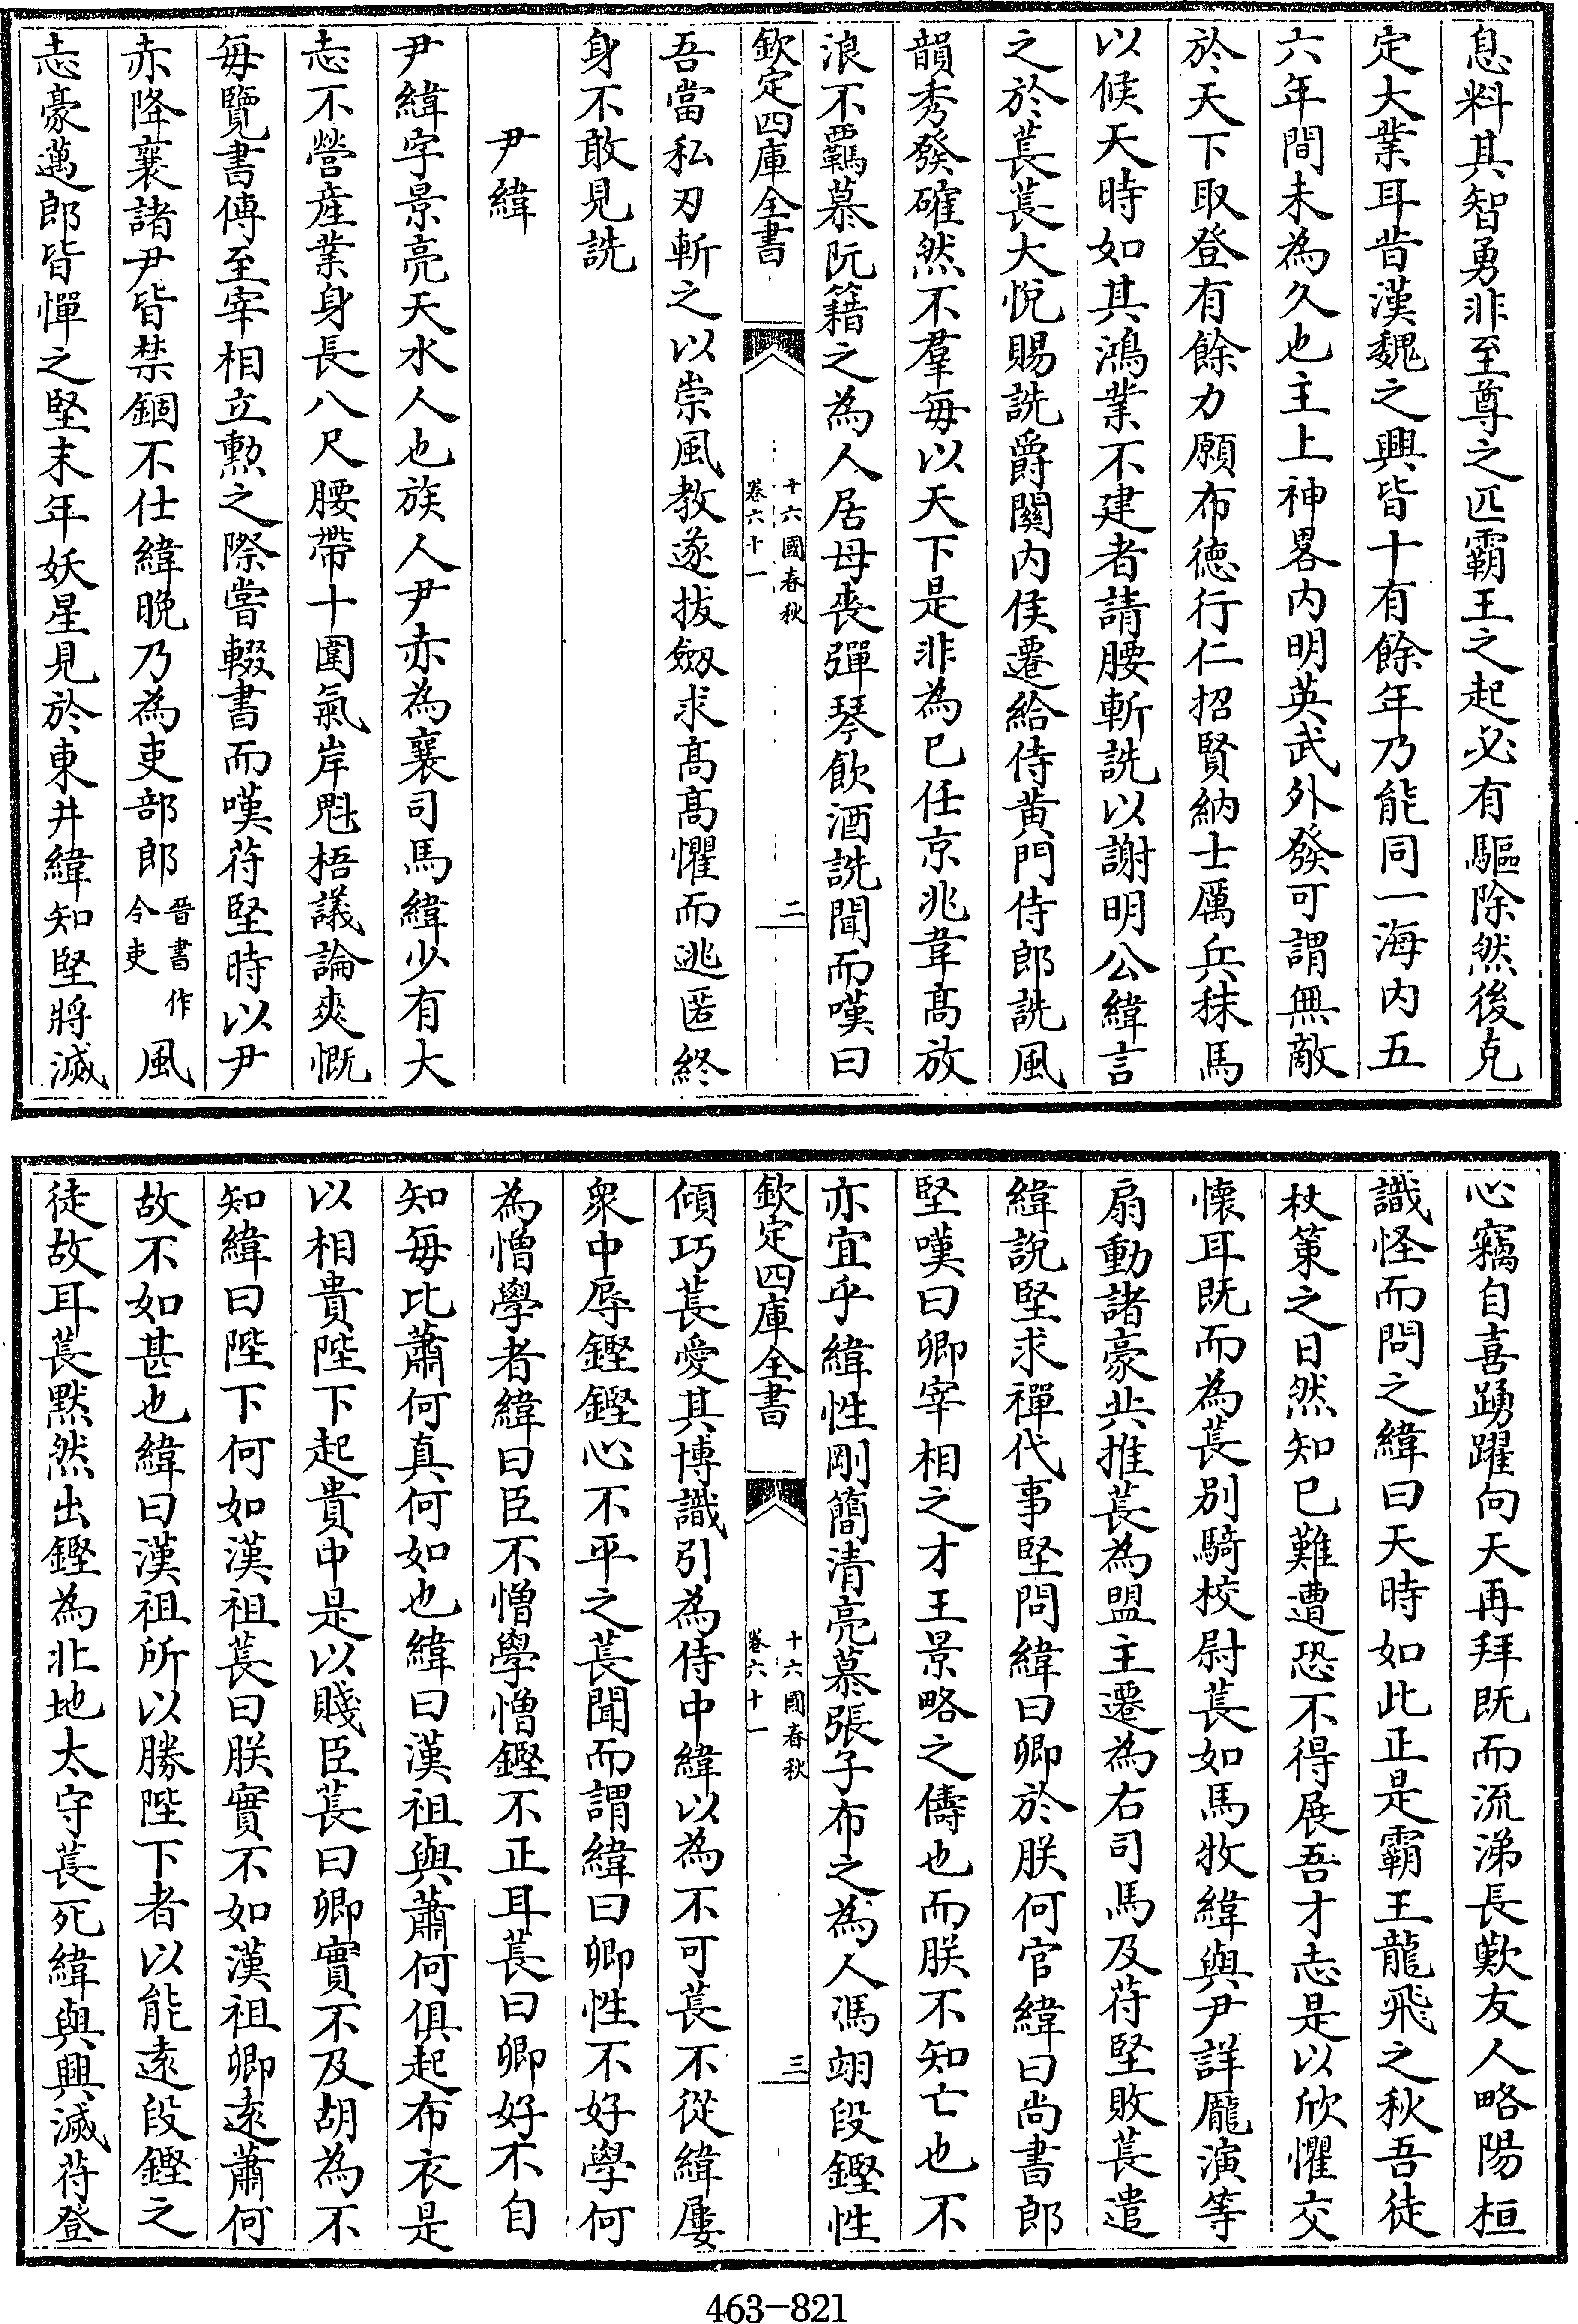 息料其智勇非至尊之匹霸王之起必有驅除然後克
定大業耳昔漢魏之興皆十有餘年乃能同一海内五
六年間未為久也主上神畧内明英武外發可謂無敵
於天下取登有餘力願布德行仁招賢納士厲兵秣馬
以候天時如其鴻業不建者請腰斬詵以謝明公緯言
之於萇萇大悅賜詵爵關内侯遷給侍黄門侍郎詵風
韻秀發確然不羣每以天下是非為已任京兆韋髙放
浪不羈慕阮籍之為人居母喪彈琴飲酒詵聞而嘆曰
欽定四庫全書
十六國春秋
卷六十一
二
吾當私刃斬之以崇風教遂拔劔求髙髙懼而逃匿終
身不敢見詵
尹緯
尹緯字景亮天水人也族人尹赤為襄司馬緯少有大
志不營産業身長八尺腰帶十圍氣岸魁梧議論爽慨
每覽書傳至宰相立勲之際嘗輟書而嘆苻堅時以尹
赤降襄諸尹皆禁錮不仕緯晩乃為吏部郎晉書作令吏風
志豪邁郎皆憚之堅末年妖星見於東井緯知堅將滅
心竊自喜踴躍向天再拜既而流涕長歎友人略陽桓
識怪而問之緯曰天時如此正是霸王龍飛之秋吾徒
杖策之日然知已難遭恐不得展吾才志是以欣懼交
懷耳既而為萇别騎校尉萇如馬牧緯與尹詳龎演等
扇動諸豪共推萇為盟主遷為右司馬及苻堅敗萇遣
緯說堅求禪代事堅問緯曰卿於朕何官緯曰尚書郎
堅嘆曰卿宰相之才王景略之儔也而朕不知亡也不
亦宜乎緯性剛簡清亮慕張子布之為人馮翊段鏗性
欽定四庫全書
十六國春秋
卷六十一
三
傾巧萇愛其博識引為侍中緯以為不可萇不從緯屢
衆中辱鏗鏗心不平之萇聞而謂緯曰卿性不好學何
為憎學者緯曰臣不憎學憎鏗不正耳萇曰卿好不自
知每比蕭何真何如也緯曰漢祖與蕭何俱起布衣是
以相貴陛下起貴中是以賤臣萇曰卿實不及胡為不
知緯曰陛下何如漢祖萇曰朕實不如漢祖卿逺蕭何
故不如甚也緯曰漢祖所以勝陛下者以能逺段鏗之
徒故耳萇黙然出鏗為北地太守萇死緯與興滅苻登
463-821